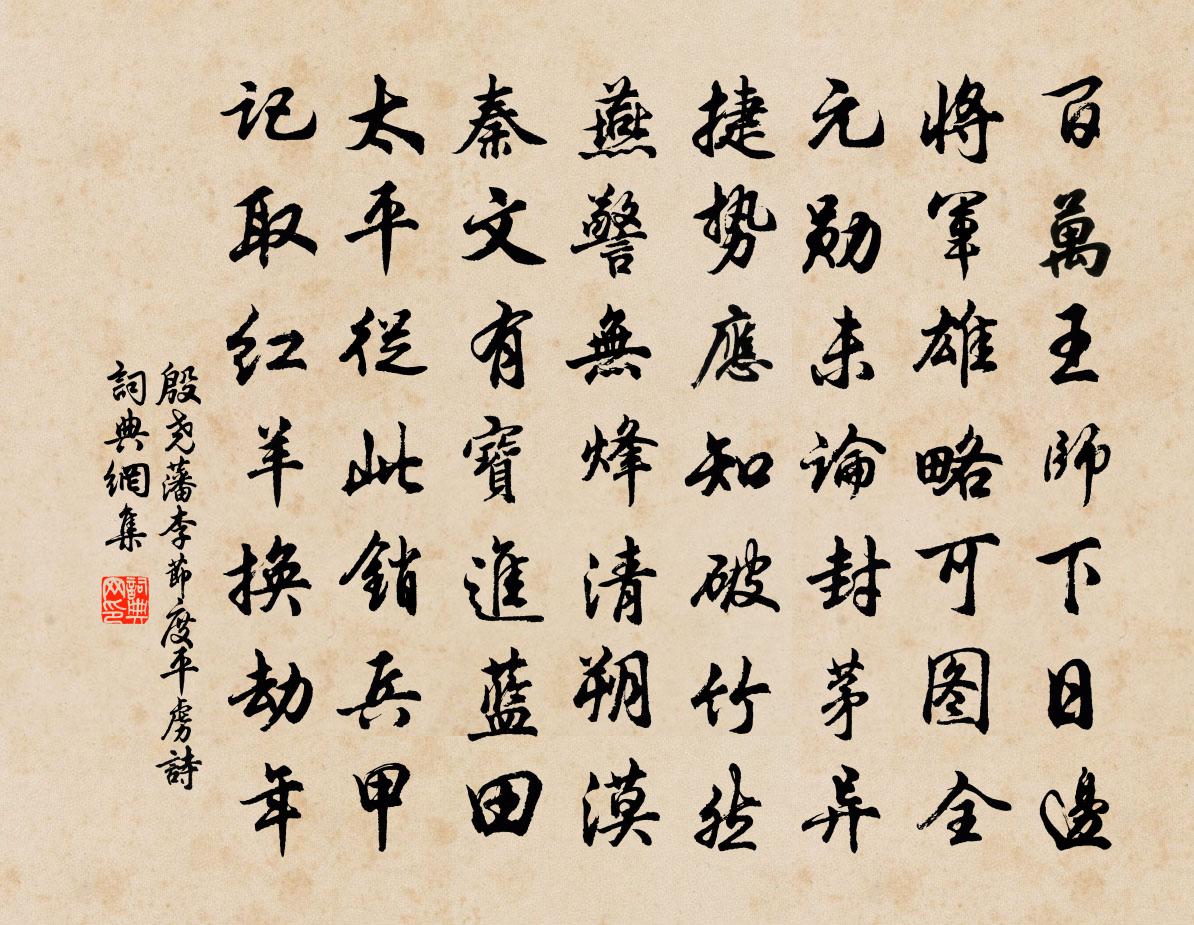 百萬王師下日邊
將軍雄略可图全
元勛未論封茅异
捷势應知破竹然
燕警無烽清朔漠
秦文有寶進藍田
太平從此銷兵甲
記取紅羊換劫年
殷尧藩李節度平虜詩
詞典網集
詞典網印